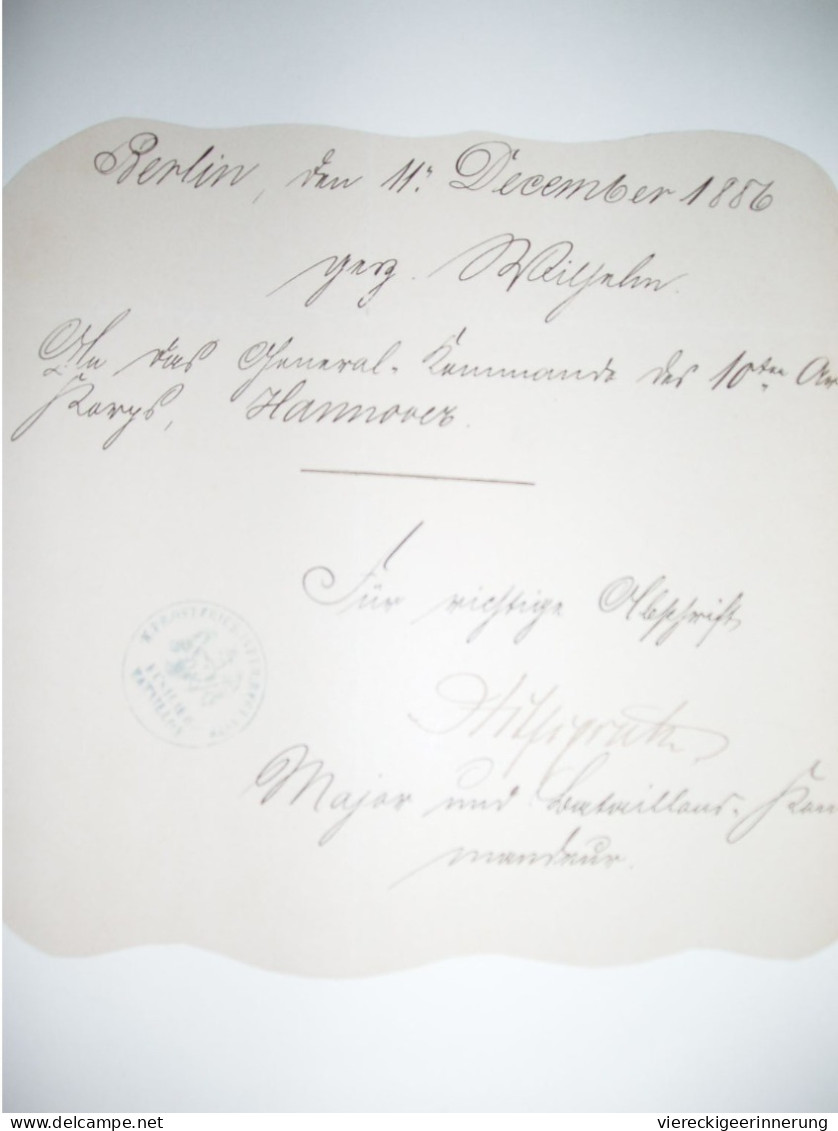 Berlin, den 11. December 1886
gez. Wilhelm.
An das General-Kommando des 10ten Ar
Korps, Hannover.
Für richtige Abschrift
Major und Bataillons-Kom
mandeur.
delcampe.net
viereckigeerinnerung